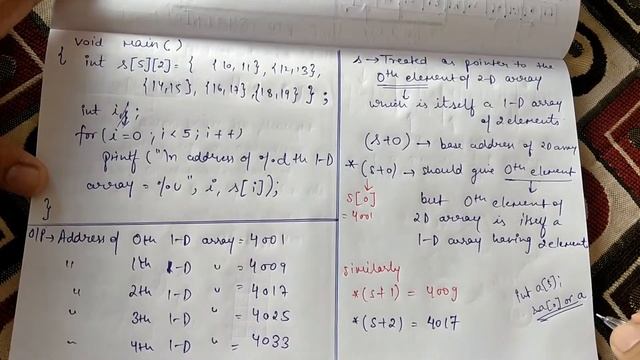 void main()
{ int s[5][2] = { {10, 11}, {12,13},
{14,15}, {16,17}, {18,19} };
int i,j;
for(i=0 ; i<5 ; i++)
printf ("\n address of %d th 1-D
array = %u", i, s[i]);
}
O/P → Address of 0th 1-D array = 4001
" 1th 1-D " = 4009
" 2th 1-D " = 4017
" 3th 1-D " = 4025
" 4th 1-D " = 4033
s → Treated as pointer to the
0th element of 2-D array
which is itself a 1-D array
of 2 elements.
(s+0) → base address of 2D array
*(s+0) → should give 0th element
s[0]
= 4001
but 0th element of
2D array is itself a
1-D array having 2 elements
similarly
*(s+1) = 4009
*(s+2) = 4017
int a[5];
&a[0] or a